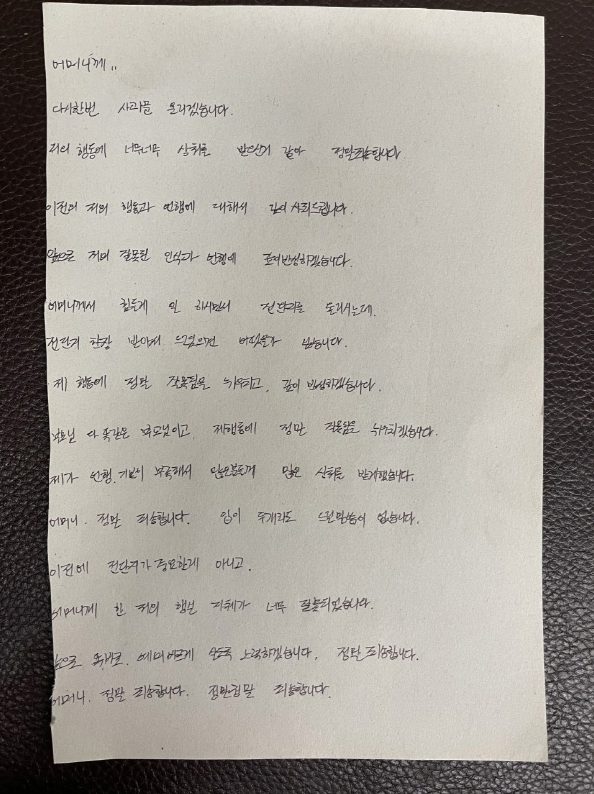 어머니께..
다시한번 사과를 올리겠습니다.
저의 행동에 너무너무 상처를 받으신거 같아 정말죄송합니다
이전의 저의 행동과 언행에 대해서 깊이 사죄드립니다.
앞으로 저의 잘못된 인식과 언행에 반성하겠습니다.
어머니께서 힘들게 일 하시면서 전단지를 돌리시는데.
전단지 한장 받아서 드렸으면 어땠을까 싶습니다.
제 행동에 정말 잘못됨을 뉘우치고. 깊이 반성하겠습니다.
부모님 다 똑같은 부모님이고 제행동에 정말 잘못됨을 뉘우치겠습니다.
제가 언행. 기본이 부족해서 많은분들께 많은 상처를 받게했습니다.
어머니. 정말 죄송합니다. 입이 두개라도 드릴말씀이 없습니다.
이전에 전단지가 중요한게 아니고.
어머니께 한 저의 행실 자체가 너무 잘못되었습니다.
앞으로 예의바르게 살도록 노력하겠습니다. 정말 죄송합니다.
어머니. 정말 죄송합니다. 정말정말 죄송합니다.